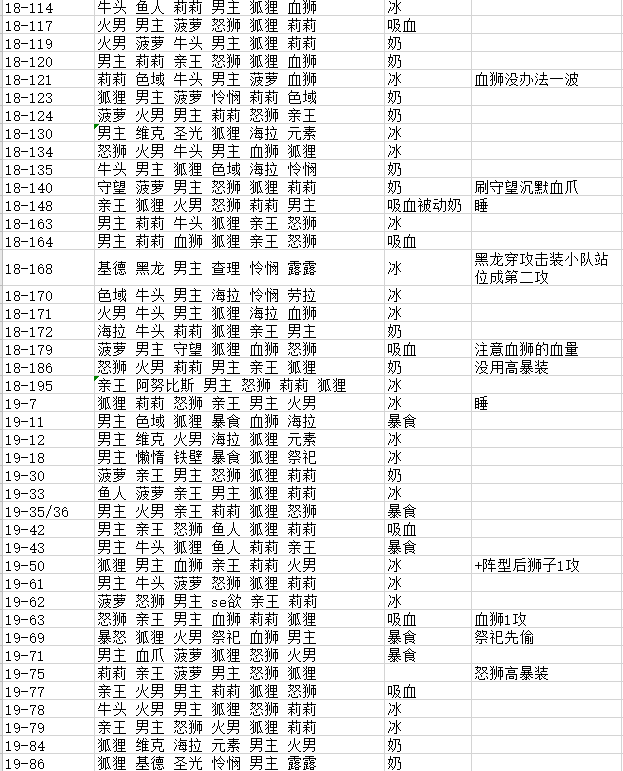 18-114 牛头 鱼人 莉莉 男主 狐狸 血狮 冰
18-117 火男 菠萝 男主 怒狮 狐狸 莉莉 吸血
18-119 火男 菠萝 牛头 男主 狐狸 莉莉 奶
18-120 男主 莉莉 亲王 怒狮 狐狸 血狮 奶
18-121 莉莉 色域 牛头 男主 菠萝 血狮 冰 血狮没办法一波
18-123 狐狸 男主 菠萝 怜悯 莉莉 色域 奶
18-124 菠萝 火男 男主 莉莉 怒狮 亲王 奶
18-130 男主 维克 圣光 狐狸 海拉 元素 冰
18-134 怒狮 火男 牛头 男主 血狮 狐狸 冰
18-135 牛头 男主 狐狸 色域 海拉 怜悯 奶
18-140 守望 菠萝 男主 怒狮 狐狸 莉莉 奶 刷守望沉默血爪
18-148 亲王 狐狸 火男 怒狮 莉莉 男主 吸血被动奶 睡
18-163 男主 莉莉 牛头 狐狸 亲王 怒狮 冰
18-164 男主 莉莉 血狮 狐狸 亲王 怒狮 吸血
18-168 基德 黑龙 男主 查理 怜悯 露露 冰 黑龙穿攻击装小队站
位成第二攻
18-170 色域 牛头 男主 海拉 怜悯 劳拉 冰
18-171 火男 牛头 男主 狐狸 海拉 血狮 冰
18-172 海拉 牛头 莉莉 狐狸 亲王 男主 奶
18-179 菠萝 男主 守望 狐狸 血狮 怒狮 吸血 注意血狮的血量
18-186 怒狮 火男 莉莉 男主 亲王 狐狸 奶 没用高暴装
18-195 亲王 阿努比斯 男主 怒狮 莉莉 狐狸 冰
19-7 狐狸 莉莉 怒狮 亲王 男主 火男 冰 睡
19-11 男主 色域 狐狸 暴食 血狮 海拉 暴食
19-12 男主 维克 火男 海拉 狐狸 元素 冰
19-18 男主 懒惰 铁壁 暴食 狐狸 祭祀 冰
19-30 菠萝 亲王 男主 怒狮 狐狸 莉莉 奶
19-33 鱼人 菠萝 亲王 男主 狐狸 莉莉 冰
19-35/36 男主 火男 亲王 莉莉 狐狸 怒狮 暴食
19-42 男主 亲王 怒狮 鱼人 狐狸 莉莉 吸血
19-43 男主 牛头 狐狸 鱼人 莉莉 亲王 暴食
19-50 狐狸 男主 血狮 亲王 莉莉 火男 冰 +阵型后狮子1攻
19-61 男主 牛头 菠萝 怒狮 狐狸 莉莉 冰
19-62 菠萝 怒狮 男主 se欲 亲王 莉莉 冰
19-63 怒狮 亲王 男主 血狮 莉莉 狐狸 吸血 血狮1攻
19-69 暴怒 狐狸 火男 祭祀 血狮 男主 暴食 祭祀先偷
19-71 男主 血爪 菠萝 狐狸 怒狮 火男 暴食
19-75 莉莉 亲王 菠萝 男主 怒狮 狐狸 怒狮高暴装
19-77 亲王 火男 男主 莉莉 狐狸 怒狮 吸血
19-78 牛头 火男 男主 狐狸 怒狮 莉莉 冰
19-79 亲王 男主 怒狮 火男 狐狸 莉莉 冰
19-84 狐狸 维克 海拉 元素 男主 火男 奶
19-86 狐狸 基德 圣光 怜悯 男主 露露 奶